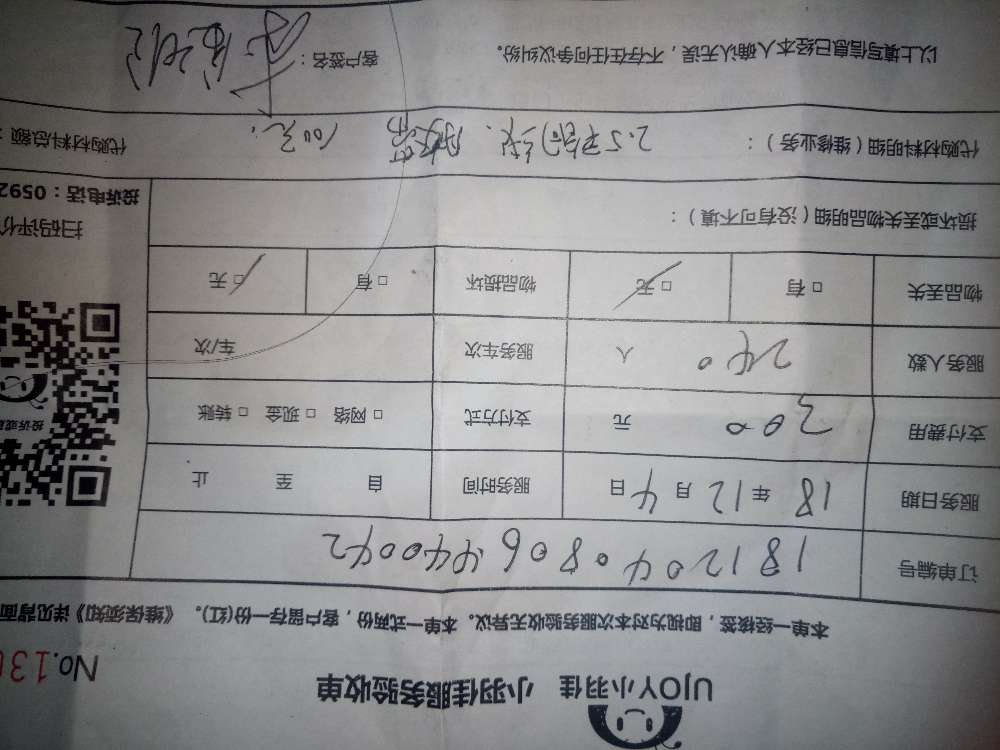 UJOY小羽佳 小羽佳服务验收单
No.130
本单一经接签，即视为对本次服务验收无异议。本单一式两份，客户留存一份(红)。《维保须知》详见背面
订单编号 1812040806440042
服务日期 18年12月4日 服务时间 自 至 止
支付费用 300 元 支付方式 □ 网络 □ 现金 □ 转账
服务人数 240 人 服务车次 车/次
物品丢失 □ 有 □ 无 物品损坏 □ 有 □ 无
损坏或丢失物品明细（没有可不填）：
代购材料明细（维修业务）： 2.5平 线. 胶带 100元. 代购材料总额：
以上填写信息已经本人确认无误，不存在任何争议纠纷。 客户签名：
投诉或
扫码评价
投诉电话：0592